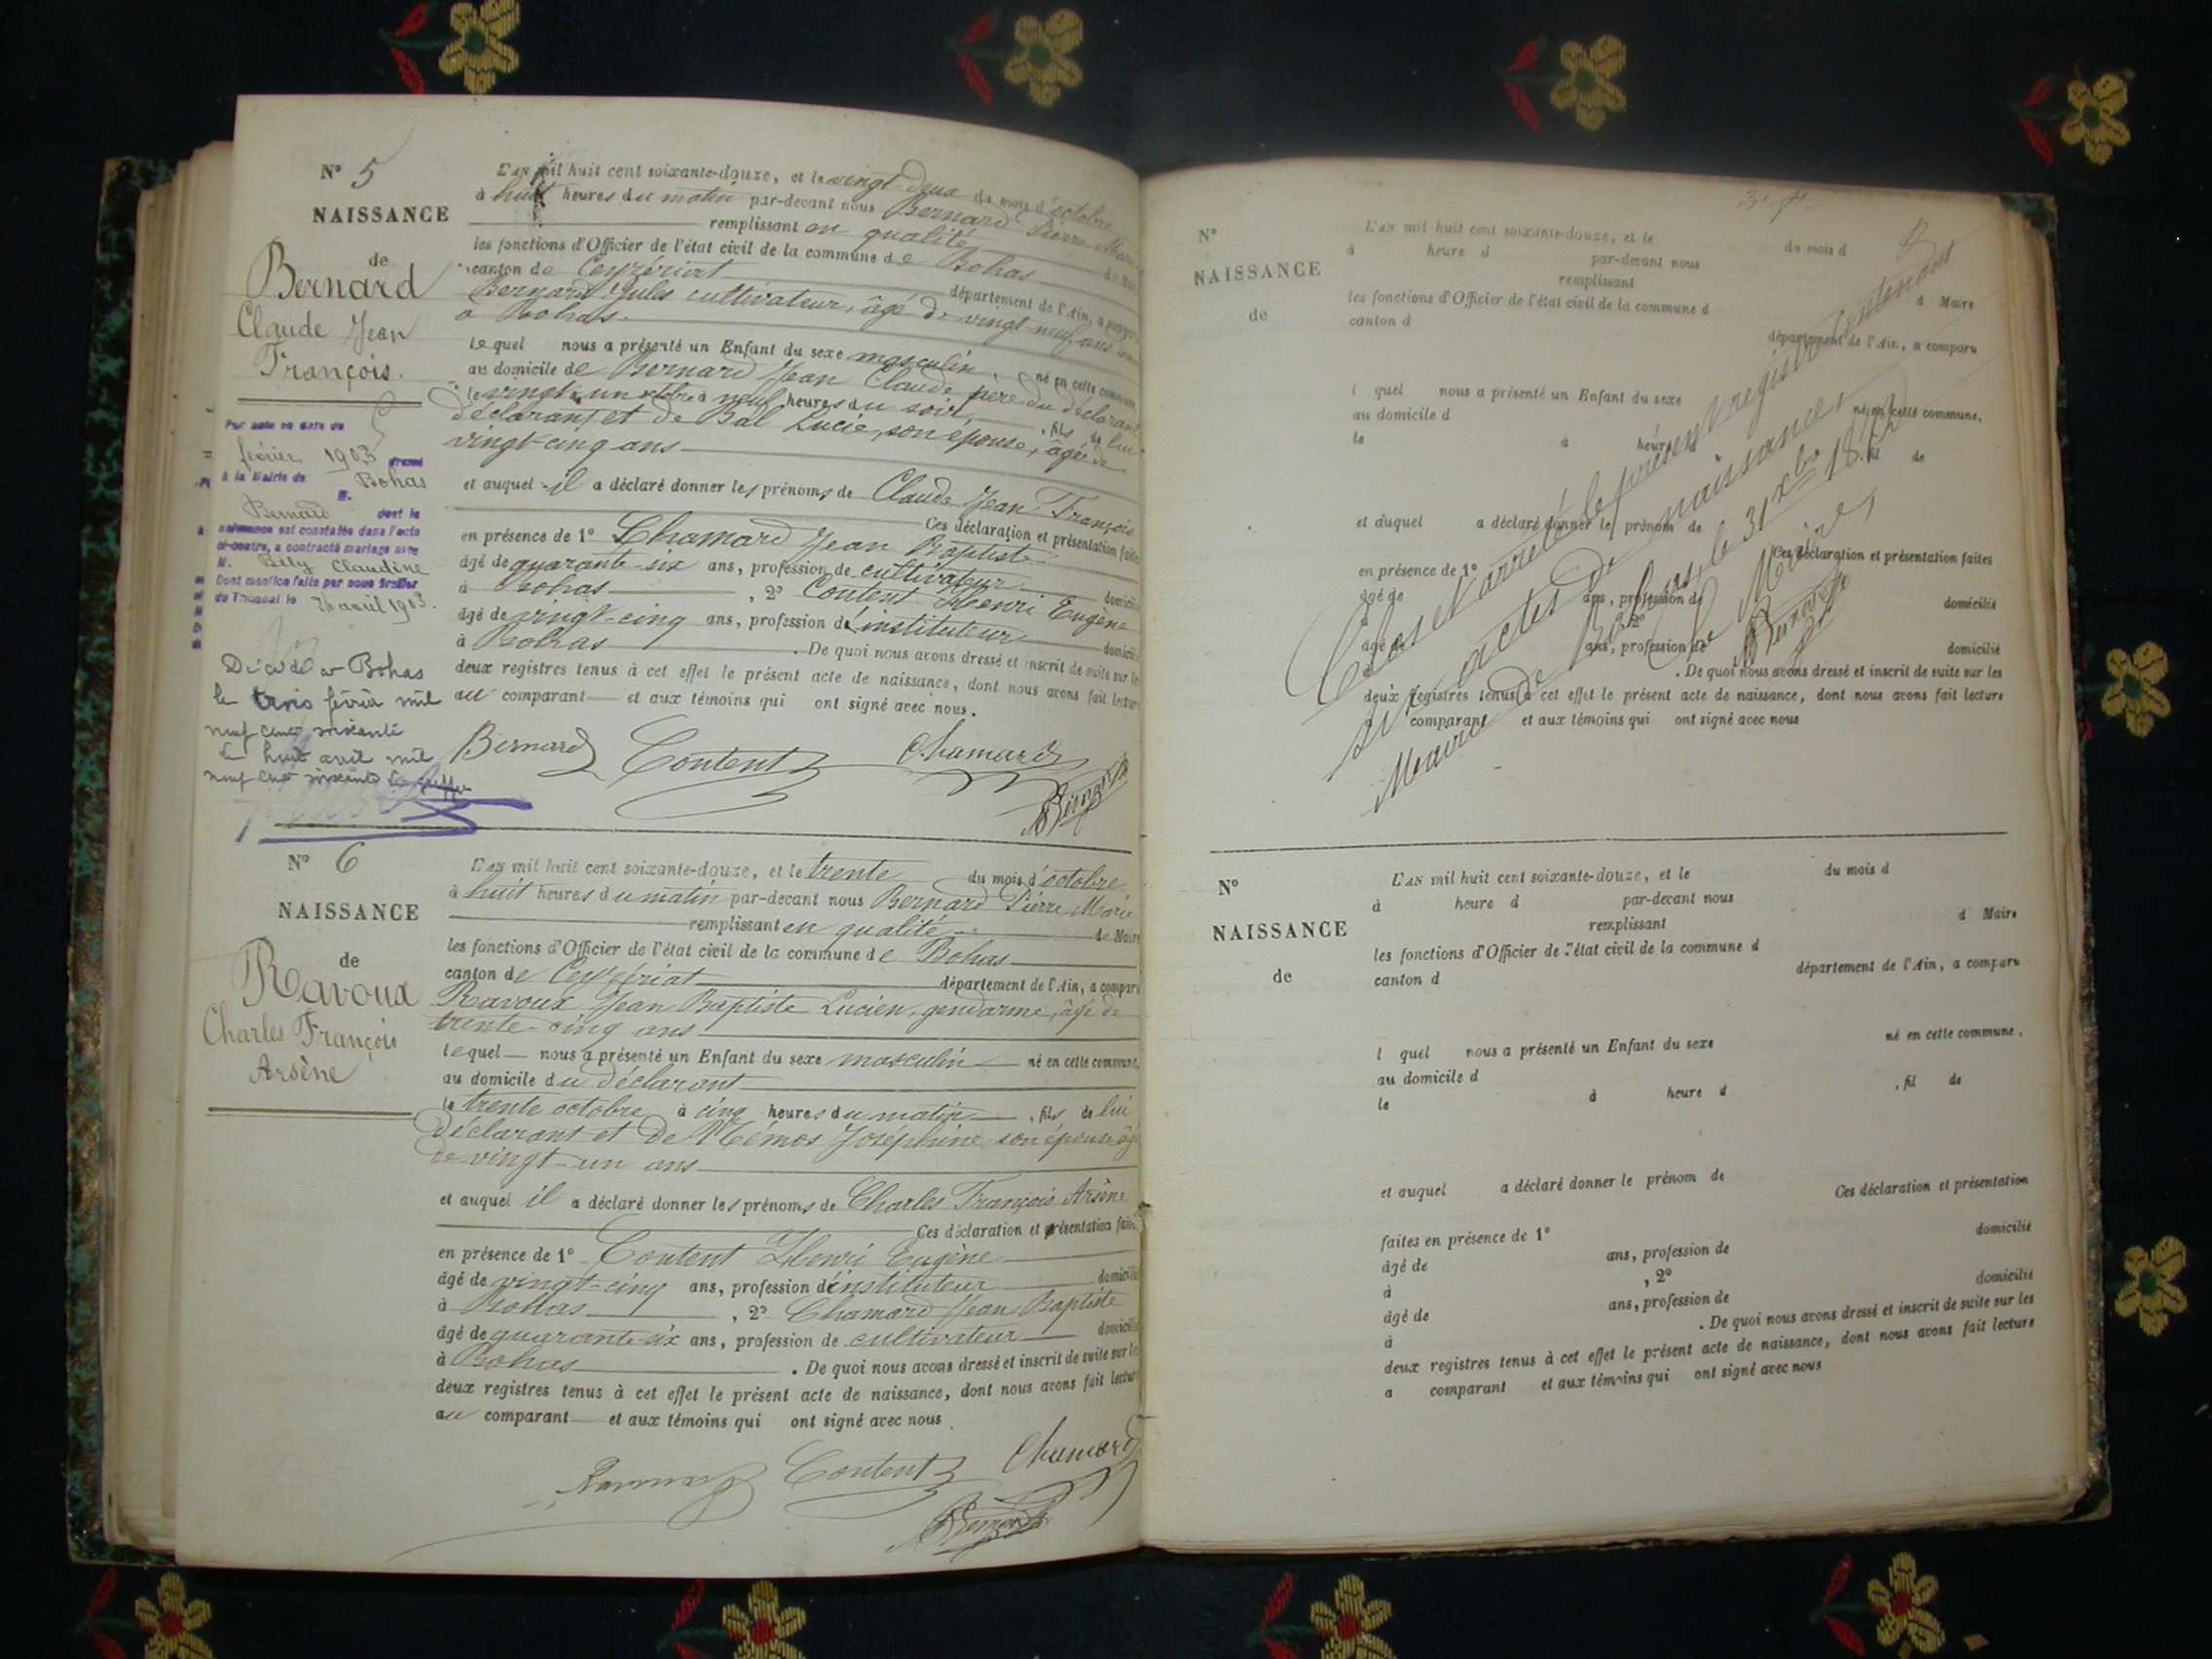 N° 5
NAISSANCE
de
Bernard
Claude Jean
François.
L'an mil huit cent soixante-douze, et le vingt deux du mois d'octobre
à huit heures du matin par-devant nous Bernard Pierre Marie
remplissant en qualité de Maire
les fonctions d'Officier de l'état civil de la commune de Bohas
canton de Ceyzériat département de l'Ain, a comparu
Bernard Jules cultivateur, âgé de vingt neuf ans
à Bohas.
lequel nous a présenté un Enfant du sexe masculin, né en cette commune,
au domicile de Bernard Jean Claude père du déclarant
le vingt un octobre à neuf heures du soir, fils de lui
déclarant et de Bal Lucie, son épouse, âgée de
vingt-cinq ans
et auquel il a déclaré donner les prénoms de Claude Jean François
Ces déclaration et présentation faites
en présence de 1° Chamard Jean Baptiste
âgé de quarante-six ans, profession de cultivateur domicilié
à Bohas, 2° Content Henri Eugène
âgé de vingt-cinq ans, profession d'instituteur domicilié
à Bohas. De quoi nous avons dressé et inscrit de suite sur les
deux registres tenus à cet effet le présent acte de naissance, dont nous avons fait lecture
au comparant et aux témoins qui ont signé avec nous.
Bernard Content Chamard
Bernard
Par acte en date du
février 1903 dressé
à la Mairie de Bohas
M.
Bernard dont la
naissance est constatée dans l'acte
ci-contre, a contracté mariage avec
M. Bély Claudine
Dont mention faite par nous Greffier
du Tribunal le 24 avril 1903.
Décédé à Bohas
le trois février mil
neuf cent soixante
Le huit avril mil
neuf cent soixante Le greffier
N° 6
NAISSANCE
de
Ravoux
Charles François
Arsène
L'an mil huit cent soixante-douze, et le trente du mois d'octobre
à huit heures du matin par-devant nous Bernard Pierre Marie
remplissant en qualité de Maire
les fonctions d'Officier de l'état civil de la commune de Bohas
canton de Ceyzériat département de l'Ain, a comparu
Ravoux Jean Baptiste Lucien, gendarme, âgé de
trente-cinq ans
lequel nous a présenté un Enfant du sexe masculin né en cette commune,
au domicile du déclarant
le trente octobre à cinq heures du matin, fils de lui
déclarant et de Mémos Joséphine son épouse âgée
de vingt-un ans
et auquel il a déclaré donner les prénoms de Charles François Arsène
Ces déclaration et présentation faites
en présence de 1° Content Henri Eugène
âgé de vingt-cinq ans, profession d'instituteur domicilié
à Bohas, 2° Chamard Jean Baptiste
âgé de quarante-six ans, profession de cultivateur domicilié
à Bohas. De quoi nous avons dressé et inscrit de suite sur les
deux registres tenus à cet effet le présent acte de naissance, dont nous avons fait lecture
au comparant et aux témoins qui ont signé avec nous.
Ravoux Content Chamard
Bernard
N°
NAISSANCE
de
L'an mil huit cent soixante-douze, et le du mois d
à heure d par-devant nous
remplissant
d Maire
les fonctions d'Officier de l'état civil de la commune d
canton d département de l'Ain, a comparu
l quel nous a présenté un Enfant du sexe né en cette commune,
au domicile d
le à heure d , fil de
et auquel a déclaré donner le prénom de
Ces déclaration et présentation faites
en présence de 1°
âgé de ans, profession de domicilié
à , 2°
âgé de ans, profession de domicilié
à . De quoi nous avons dressé et inscrit de suite sur les
deux registres tenus à cet effet le présent acte de naissance, dont nous avons fait lecture
a comparant et aux témoins qui ont signé avec nous
Clos et arrêté le présent registre contenant
six actes de naissances,
Mairie de Bohas, le 31 Xbre 1872
Le Maire,
Bernard
N°
NAISSANCE
de
L'an mil huit cent soixante-douze, et le du mois d
à heure d par-devant nous
remplissant d Maire
les fonctions d'Officier de l'état civil de la commune d
canton d département de l'Ain, a comparu
l quel nous a présenté un Enfant du sexe né en cette commune,
au domicile d
le à heure d , fil de
et auquel a déclaré donner le prénom de
Ces déclaration et présentation
faites en présence de 1° domicilié
âgé de ans, profession de
à , 2° domicilié
âgé de ans, profession de
à . De quoi nous avons dressé et inscrit de suite sur les
deux registres tenus à cet effet le présent acte de naissance, dont nous avons fait lecture
a comparant et aux témoins qui ont signé avec nous